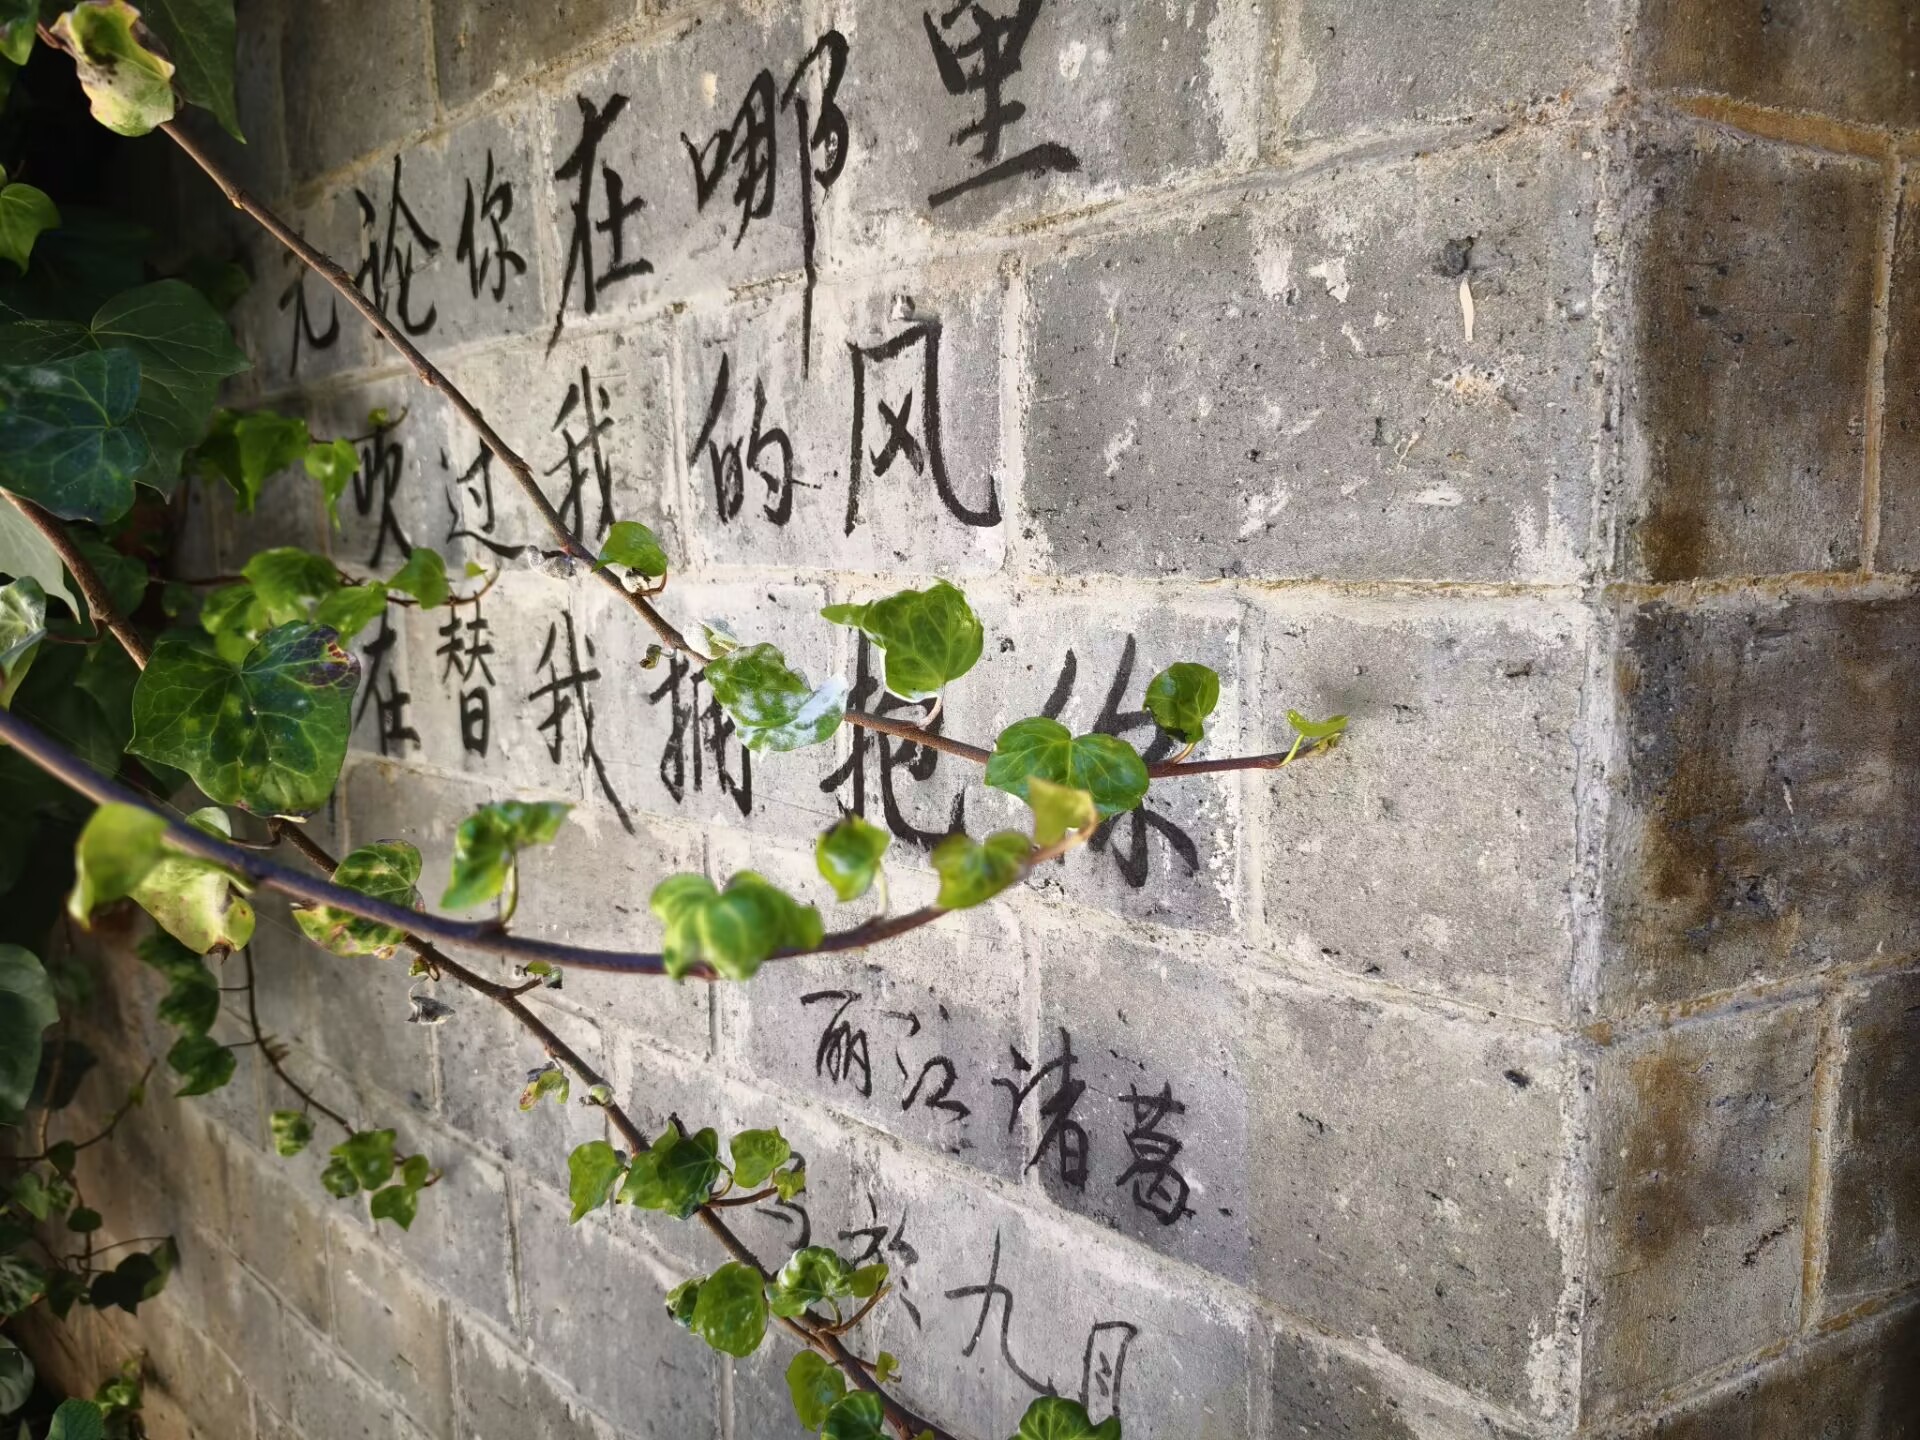 无论你在哪里
吹过我的风
在替我拥抱你
丽江诸葛
写於九月